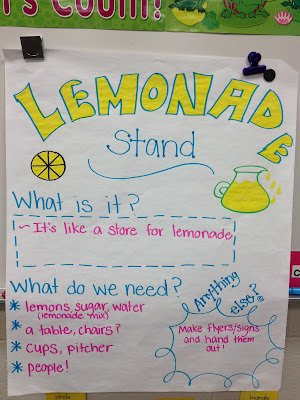 's Count!
LEMONADE
Stand
What is it?
~ It's like a store for lemonade
What do we need?
* lemons, sugar, water
(lemonade mix)
* a table, chairs?
* cups, pitcher
* people!
Anything
else?
Make flyers/signs
and hand them
out!
circle